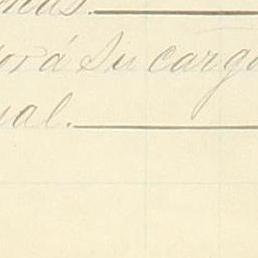 mas.
rá su cargo
ual.